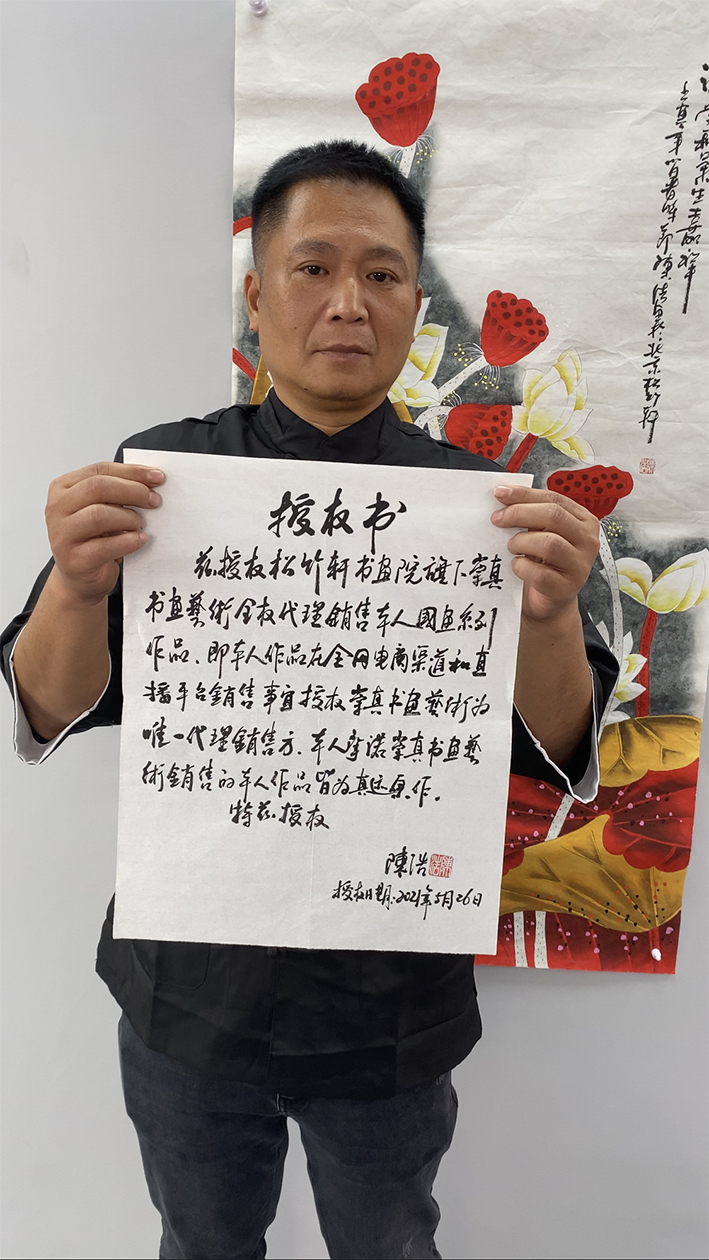 授权书
兹授权松竹轩书画院旗下崇真
书画藝術全权代理銷售本人國画系列
作品、即本人作品在全网电商渠道和直
播平台銷售事宜授权崇真书画藝術为
唯一代理銷售方、本人承诺崇真书画藝
術銷售的本人作品皆为真迹原作。
特兹授权
陳浩
授权日期：2021年5月26日